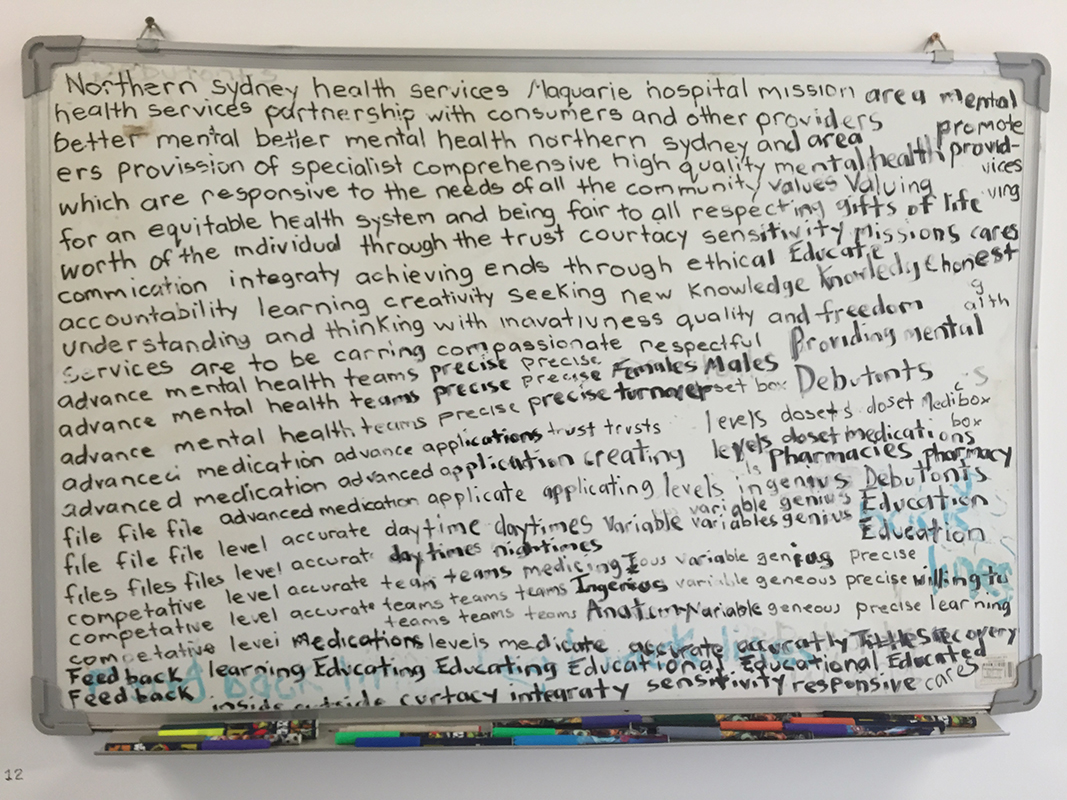 Northern sydney health services Maquarie hospital mission area mental
health services partnership with consumers and other providers promote
better mental better mental health northern sydney and area
ers provission of specialist comprehensive high quality mental health provid-
which are responsive to the needs of all the community values Valuing vices
for an equitable health system and being fair to all respecting gifts of life ving
worth of the individual through the trust courtacy sensitivity missions cares
commication integraty achieving ends through ethical Educate
accountability learning creativity seeking new Knowledge Knowledge honest
understanding and thinking with inavativness quality and freedom
services are to be carring compassionate respectful Providing mental
advance mental health teams precise precise Females Males
advance mental health teams precise precise precise turnover set box Debutonts
advance mental health teams precise precise
advanced medication advance applications trust trusts levels dosets doset Medibox
advanced medication advanced application creating levels doset medications box
file file file advanced medication applicate applicating levels ingenius Pharmacies pharmacy
file file file level accurate daytime daytimes variable variable genius Debutonts
files files files level accurate daytimes nightimes variables genius Education
Education
competative level accurate team teams medicing variable genius precise
competative level accurate teams teams teams Ingenious variable geneous precise willing to
competative level teams teams teams Anatomy variable geneous precise learning
Medications levels medicate accurate accuratly recovery
Feedback learning Educating Educating Educational Educational Educated
Feedback inside outside curtacy integraty sensitivity responsive cares
12